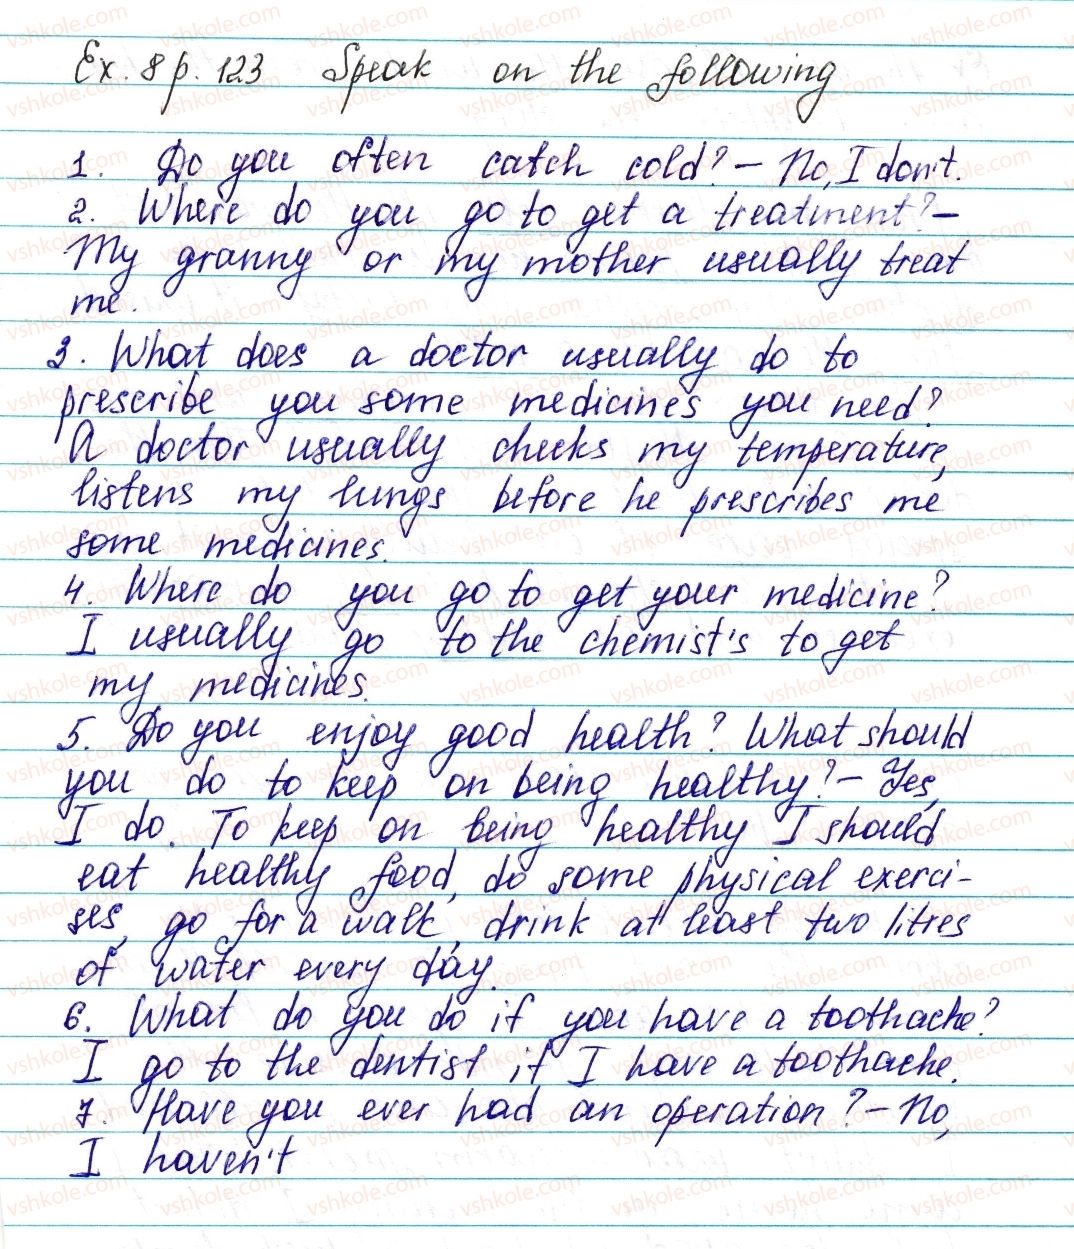 Ex. 8 p. 123 Speak on the following
1. Do you often catch cold? – No, I don't.
2. Where do you go to get a treatment? –
My granny or my mother usually treat
me.
3. What does a doctor usually do to
prescribe you some medicines you need?
A doctor usually checks my temperature,
listens my lungs before he prescribes me
some medicines.
4. Where do you go to get your medicine?
I usually go to the chemist's to get
my medicines.
5. Do you enjoy good health? What should
you do to keep on being healthy? – Yes,
I do. To keep on being healthy I should
eat healthy food, do some physical exerci-
ses, go for a walk, drink at least two litres
of water every day.
6. What do you do if you have a toothache?
I go to the dentist if I have a toothache.
7. Have you ever had an operation? – No,
I haven't